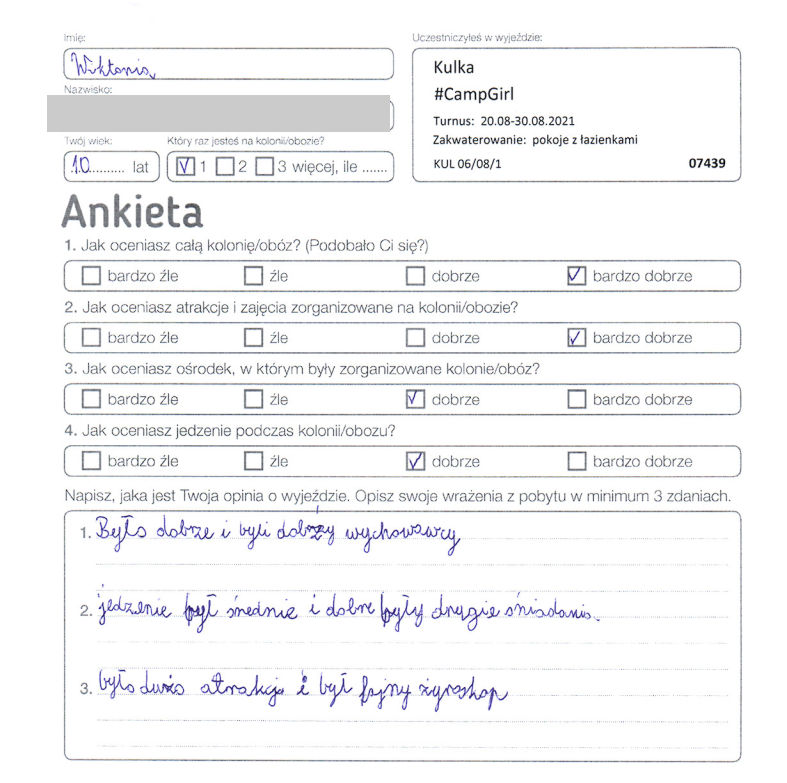 Imię:
Wiktoria
Nazwisko:
Twój wiek:
Który raz jesteś na kolonii/obozie?
10 lat
1 2 3 więcej, ile .......
Uczestniczyłeś w wyjeździe:
Kulka
#CampGirl
Turnus: 20.08-30.08.2021
Zakwaterowanie: pokoje z łazienkami
KUL 06/08/1 07439
Ankieta
1. Jak oceniasz całą kolonię/obóz? (Podobało Ci się?)
bardzo źle źle dobrze bardzo dobrze
2. Jak oceniasz atrakcje i zajęcia zorganizowane na kolonii/obozie?
bardzo źle źle dobrze bardzo dobrze
3. Jak oceniasz ośrodek, w którym były zorganizowane kolonie/obóz?
bardzo źle źle dobrze bardzo dobrze
4. Jak oceniasz jedzenie podczas kolonii/obozu?
bardzo źle źle dobrze bardzo dobrze
Napisz, jaka jest Twoja opinia o wyjeździe. Opisz swoje wrażenia z pobytu w minimum 3 zdaniach.
1. Było dobrze i byli dobrzy wychowawcy
2. jedzenie był średnie i dobre były drugie śniadania.
3. było dużo atrakcji i był fajny żyroskop